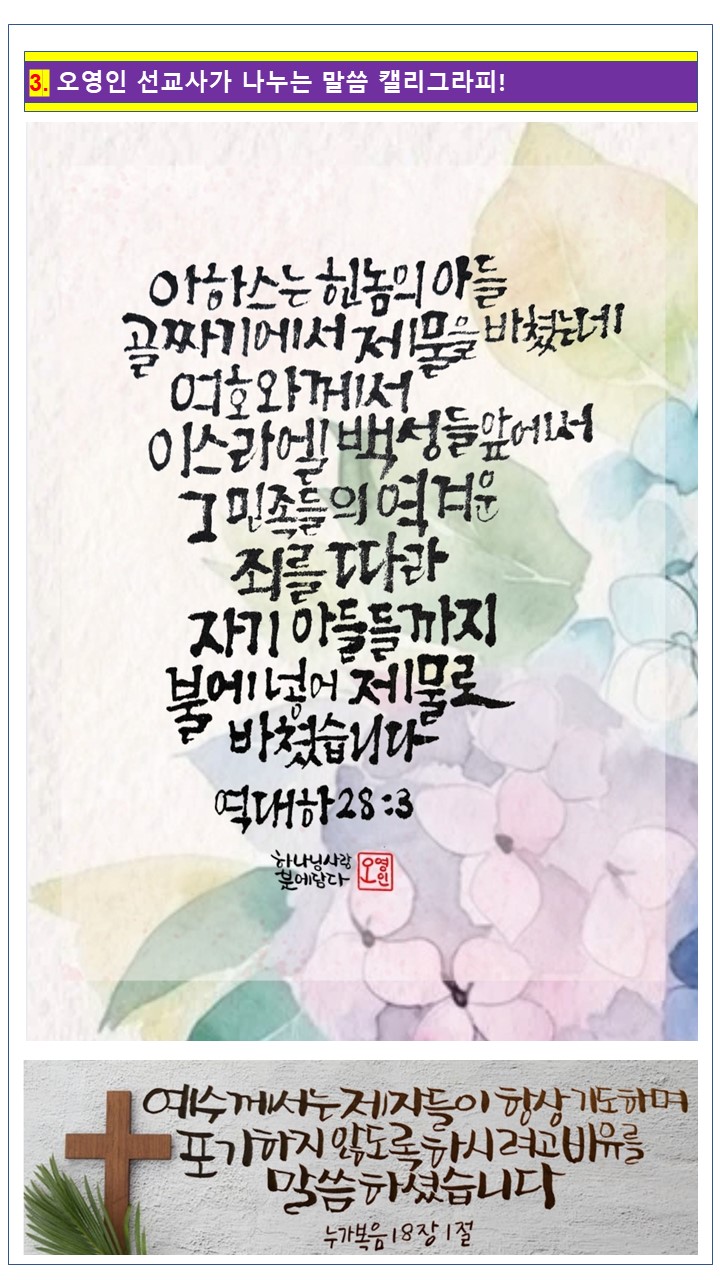 3. 오영인 선교사가 나누는 말씀 캘리그라피!
아하스는 힌놈의 아들
골짜기에서 제물을 바쳤는데
여호와께서
이스라엘 백성들 앞에서
그 민족들의 역겨운
죄를 따라
자기 아들들까지
불에 넣어 제물로
바쳤습니다
역대하 28:3
하나님사랑
붓에담다
오영인
예수께서는 제자들이 항상 기도하며
포기하지 않도록 하시려고 비유를
말씀하셨습니다
누가복음 18장 1절